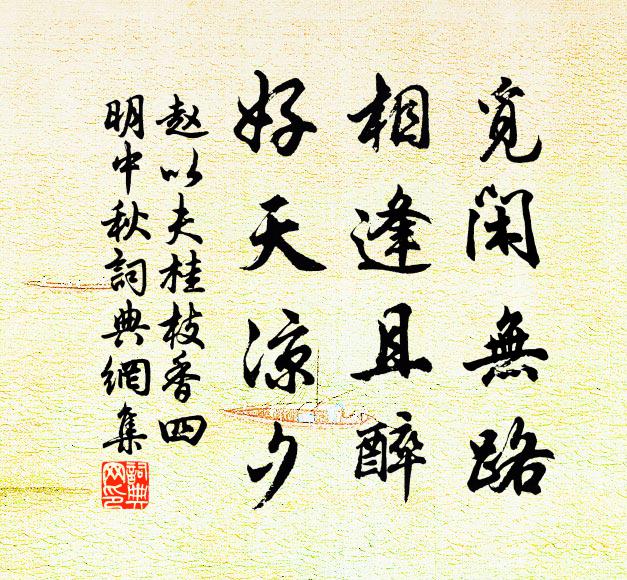 覓閑無路
相逢且醉
好天涼夕
赵以夫桂枝香四
明中秋詞典網集
詞典网印